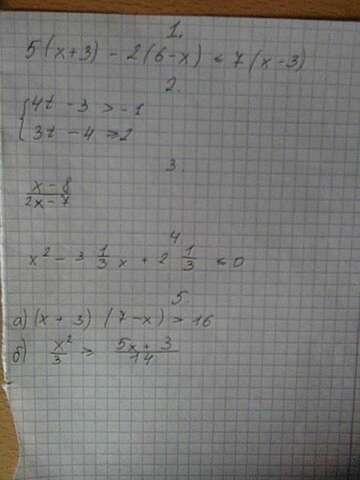 1.
5(x+3) - 2(6-x) < 7(x-3)
2.
{ 4t - 3 > -1
3t - 4 > 2
3.
x - 8
2x - 7
4
x² - 3 1/3 x + 2 1/3 < 0
5
а) (x + 3) (7-x) > 16
б) x²/3 > 5x + 3/14